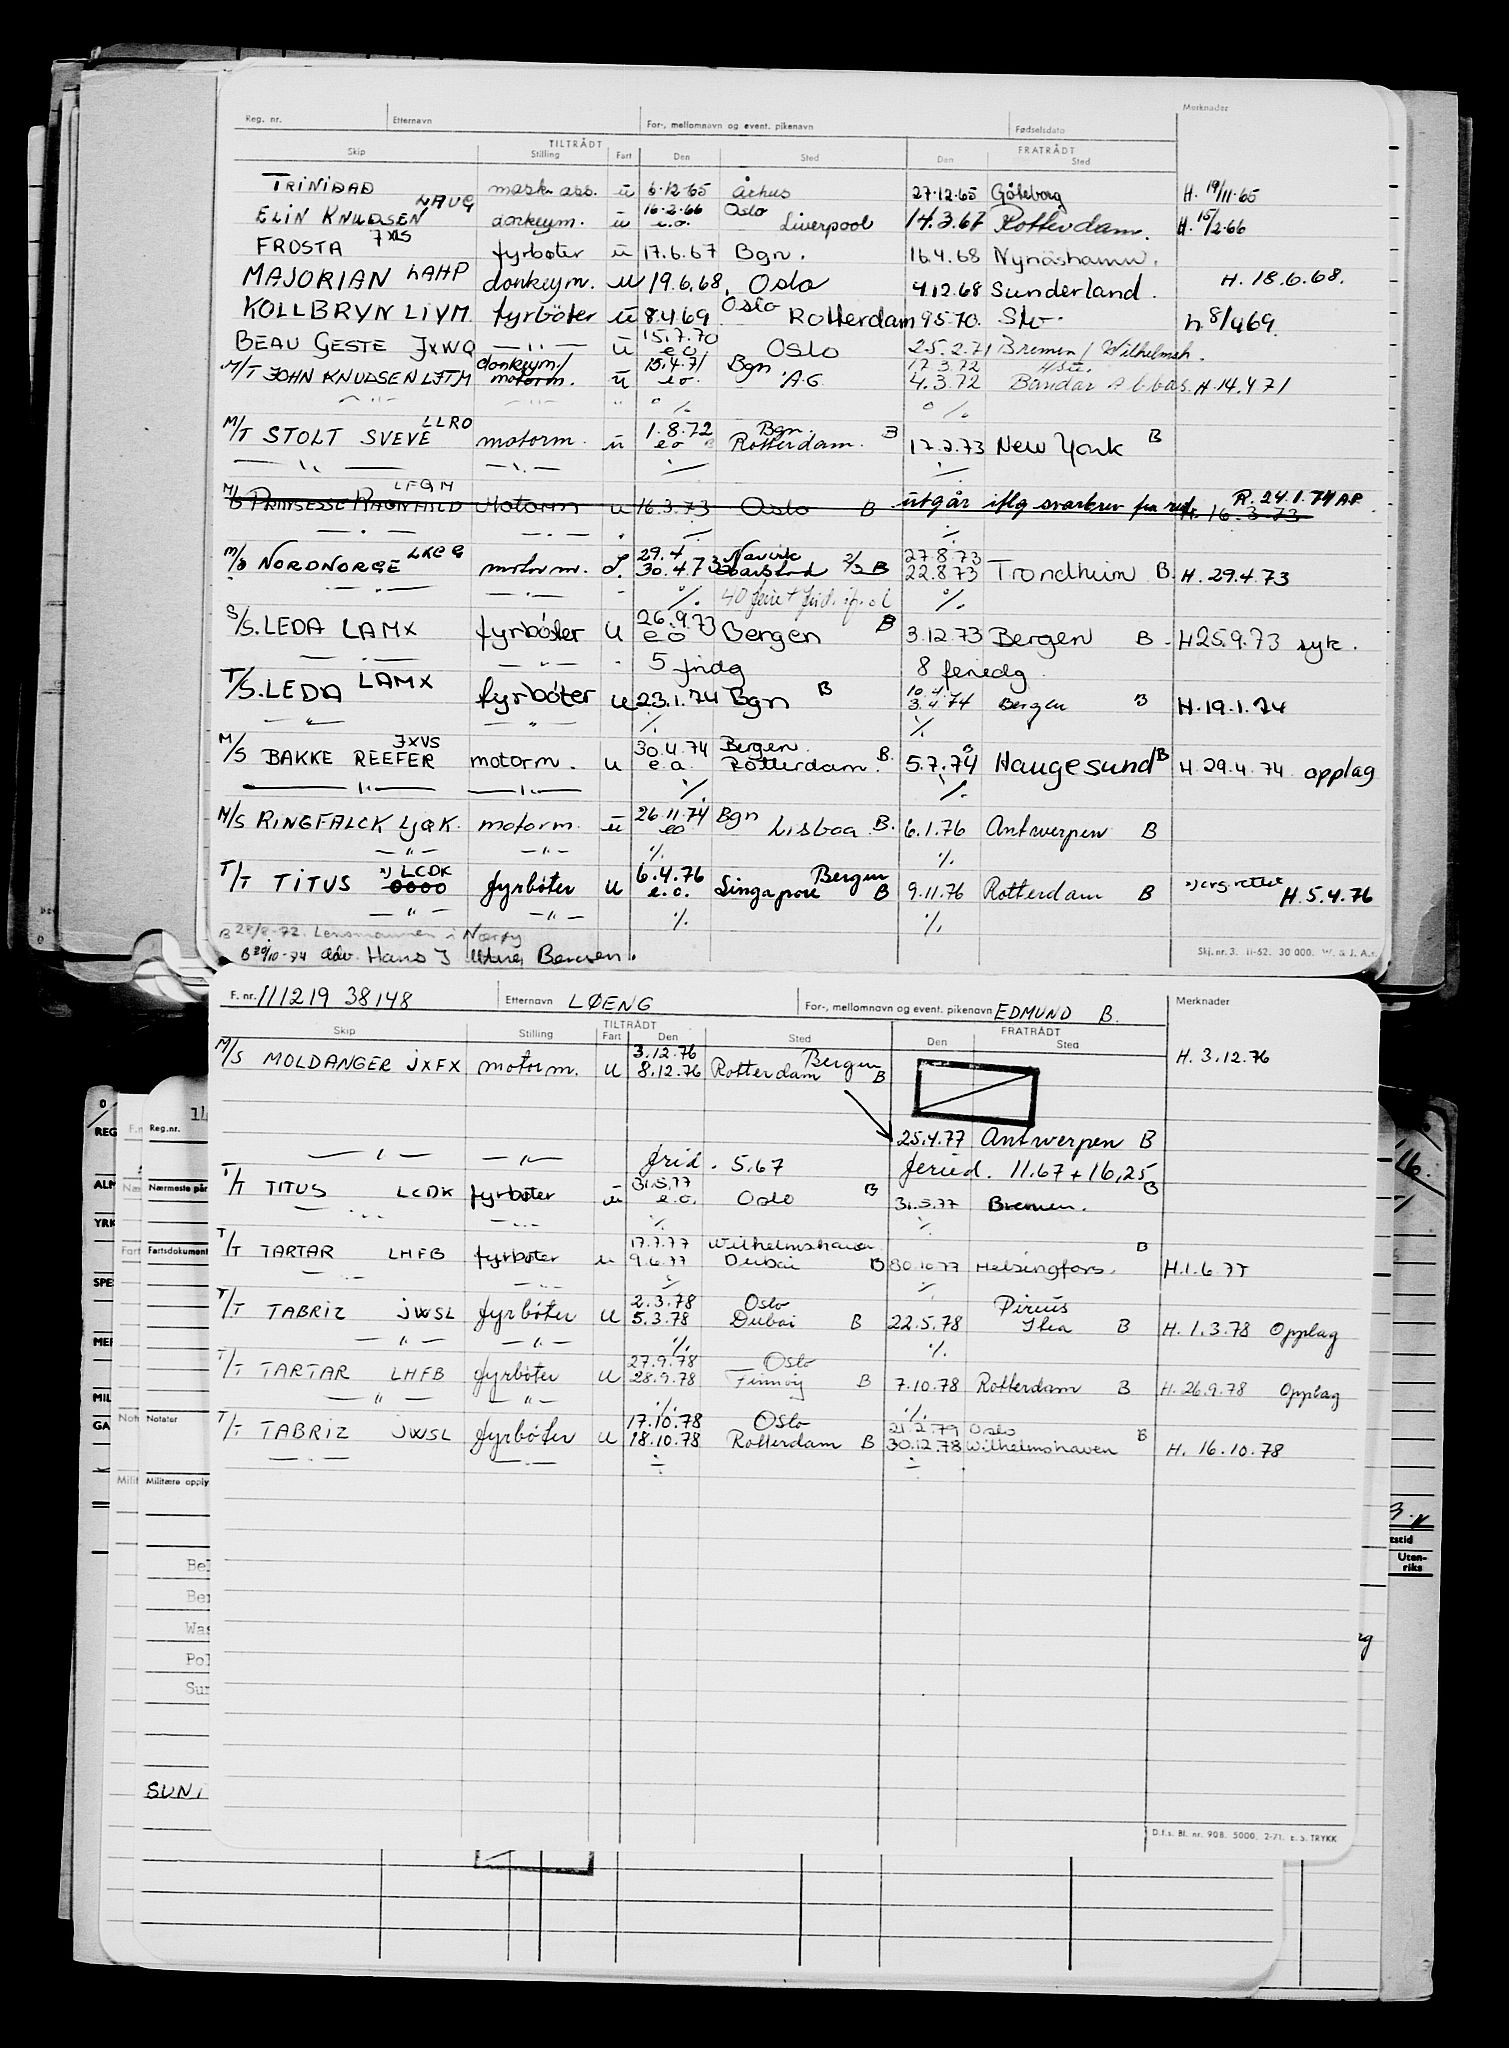 Reg. nr. Etternavn For-, mellomnavn og event. pikenavn Fødselsdato Merknader
TILTRÅDT FRATRÅDT
Skip Stilling Fart Den Sted Den Sted
TRINIDAD mask. ass. u 6.12.65 Århus 27.12.65 Göteborg H. 19/11.65
LAUG 16.2.66 Oslo
ELIN KNUDSEN donkeym. u e.o. Liverpool 14.3.67 Rotterdam. H. 15/2.66
FROSTA fyrbøter u 17.6.67 Bgn. 16.4.68 Nynäshamn.
MAJORIAN LAHP donkeym. u 19.6.68. Oslo 4.12.68 Sunderland. H. 18.6.68.
Oslo
KOLLBRYN LIVM fyrbøter u 8.4.69 Rotterdam 9.5.70. h 8/4 69.
15.7.70
BEAU GESTE JXWQ — " — u e o Oslo 25.2.71 Bremen / Wilhelmsh.
donkeym/ 15.4.71 Bgn 17.3.72
M/T JOHN KNUDSEN LJTM motorm. u e o. A.G. 4.3.72 Bandar Abbas. H. 14.4 71
— " — — " — " % %
LLRO 1.8.72 Bgn. B
M/T STOLT SVEVE motorm. u e o B Rotterdam. 17.2.73 New York B
— " — — " — % %
LFQM R. 24.1.74 AP
M/S PRINSESSE RAGNHILD Motorm u 16.3.73 Oslo B utgår iflg svarbrev fra red. H. 16.3.73
— " — — " — % %
LKCG 29.4 Narvik 27.8.73
M/S NORDNORGE motorm. 30.4.73 Harstad B 22.8 73 Trondheim B. H. 29.4.73
% 40 %
26.9.73
S/S. LEDA LAMX fyrbøter u e o Bergen B 3.12.73 Bergen B. H 25.9.73 syk.
— " — — " — 5 fridg 8 feriedg
LAMX 10.4.
T/S. LEDA fyrbøter u 23.1.74 Bgn B 3.4.74 Bergen B H. 19.1.74
— " — — " — % %
JXVS 30.4.74 Bergen
M/S BAKKE REEFER motorm. u e.o. Rotterdam. B. 5.7.74 Haugesund B H. 29.4.74 opplag
— " — — " — % %
26.11.74 Bgn
M/S RINGFALCK LJQK. motorm. u eo Lisboa B. 6.1.76 Antwerpen B
— " — — " — % %
LCDK 6.4.76 Bergen
T/T TITUS 0000 fyrbøter u e.o. Singapore B 9.11.76 Rotterdam B H. 5.4.76
— " — — " — % %
B 28/8-72. Lensmannen i Nærøy
B 20/10-74 adv. Hans J Bensen.
Skj. nr. 3. 11-62. 30 000. W. & J. A.s.
F. nr. 111219 38148 Etternavn LØENG For-, mellomnavn og event. pikenavn EDMUND B. Merknader
TILTRÅDT FRATRÅDT
Skip Stilling Fart Den Sted Den Sted
3.12.76 Bergen H. 3.12.76
M/S MOLDANGER JXFX motorm. u 8.12.76 Rotterdam B
25.4.77 Antwerpen B
— " — — " — frid. 5.67 feried. 11.67 + 16,25
31.5.77 B
T/T TITUS LCDK fyrbøter u e.o. Oslo B 31.5.77 Bremen.
— " — — " — % %
17.7.77 Wilhelmshaven B
T/T TARTAR LHFB fyrbøter u 9.6.77 Dubai B 30.10.77 Helsingfors. H. 1.6.77
— " — — " — % %
2.3.78 Oslo Pireus
T/T TABRIZ JWSL fyrbøter u 5.3.78 Dubai B 22.5.78 Itea B H. 1.3.78 Opplag
— " — — " — % %
27.9.78 Oslo
T/T TARTAR LHFB fyrbøter u 28.9.78 Finnøy B 7.10.78 Rotterdam B H. 26.9.78 Opplag
— " — — " — % %
17.10.78 Oslo 21.2.79 Oslo B
T/T TABRIZ JWSL fyrbøter u 18.10.78 Rotterdam B 30.12.78 Wilhelmshaven H. 16.10.78
— " — — " — % %
D.f.s. Bl. nr. 90B. 5000, 2-71. E.S. TRYKK
Reg.nr.
Nærmeste pår
Fartsdokument
Notater
Militære opply
SUNI
Uten-
riks